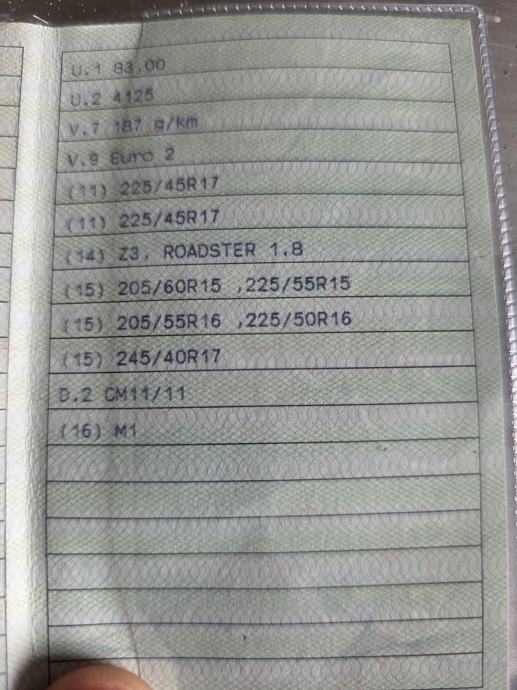 U.1 83.00
U.2 4125
V.7 187 g/km
V.9 Euro 2
(11) 225/45R17
(11) 225/45R17
(14) Z3, ROADSTER 1.8
(15) 205/60R15 ,225/55R15
(15) 205/55R16 ,225/50R16
(15) 245/40R17
D.2 CM11/11
(16) M1